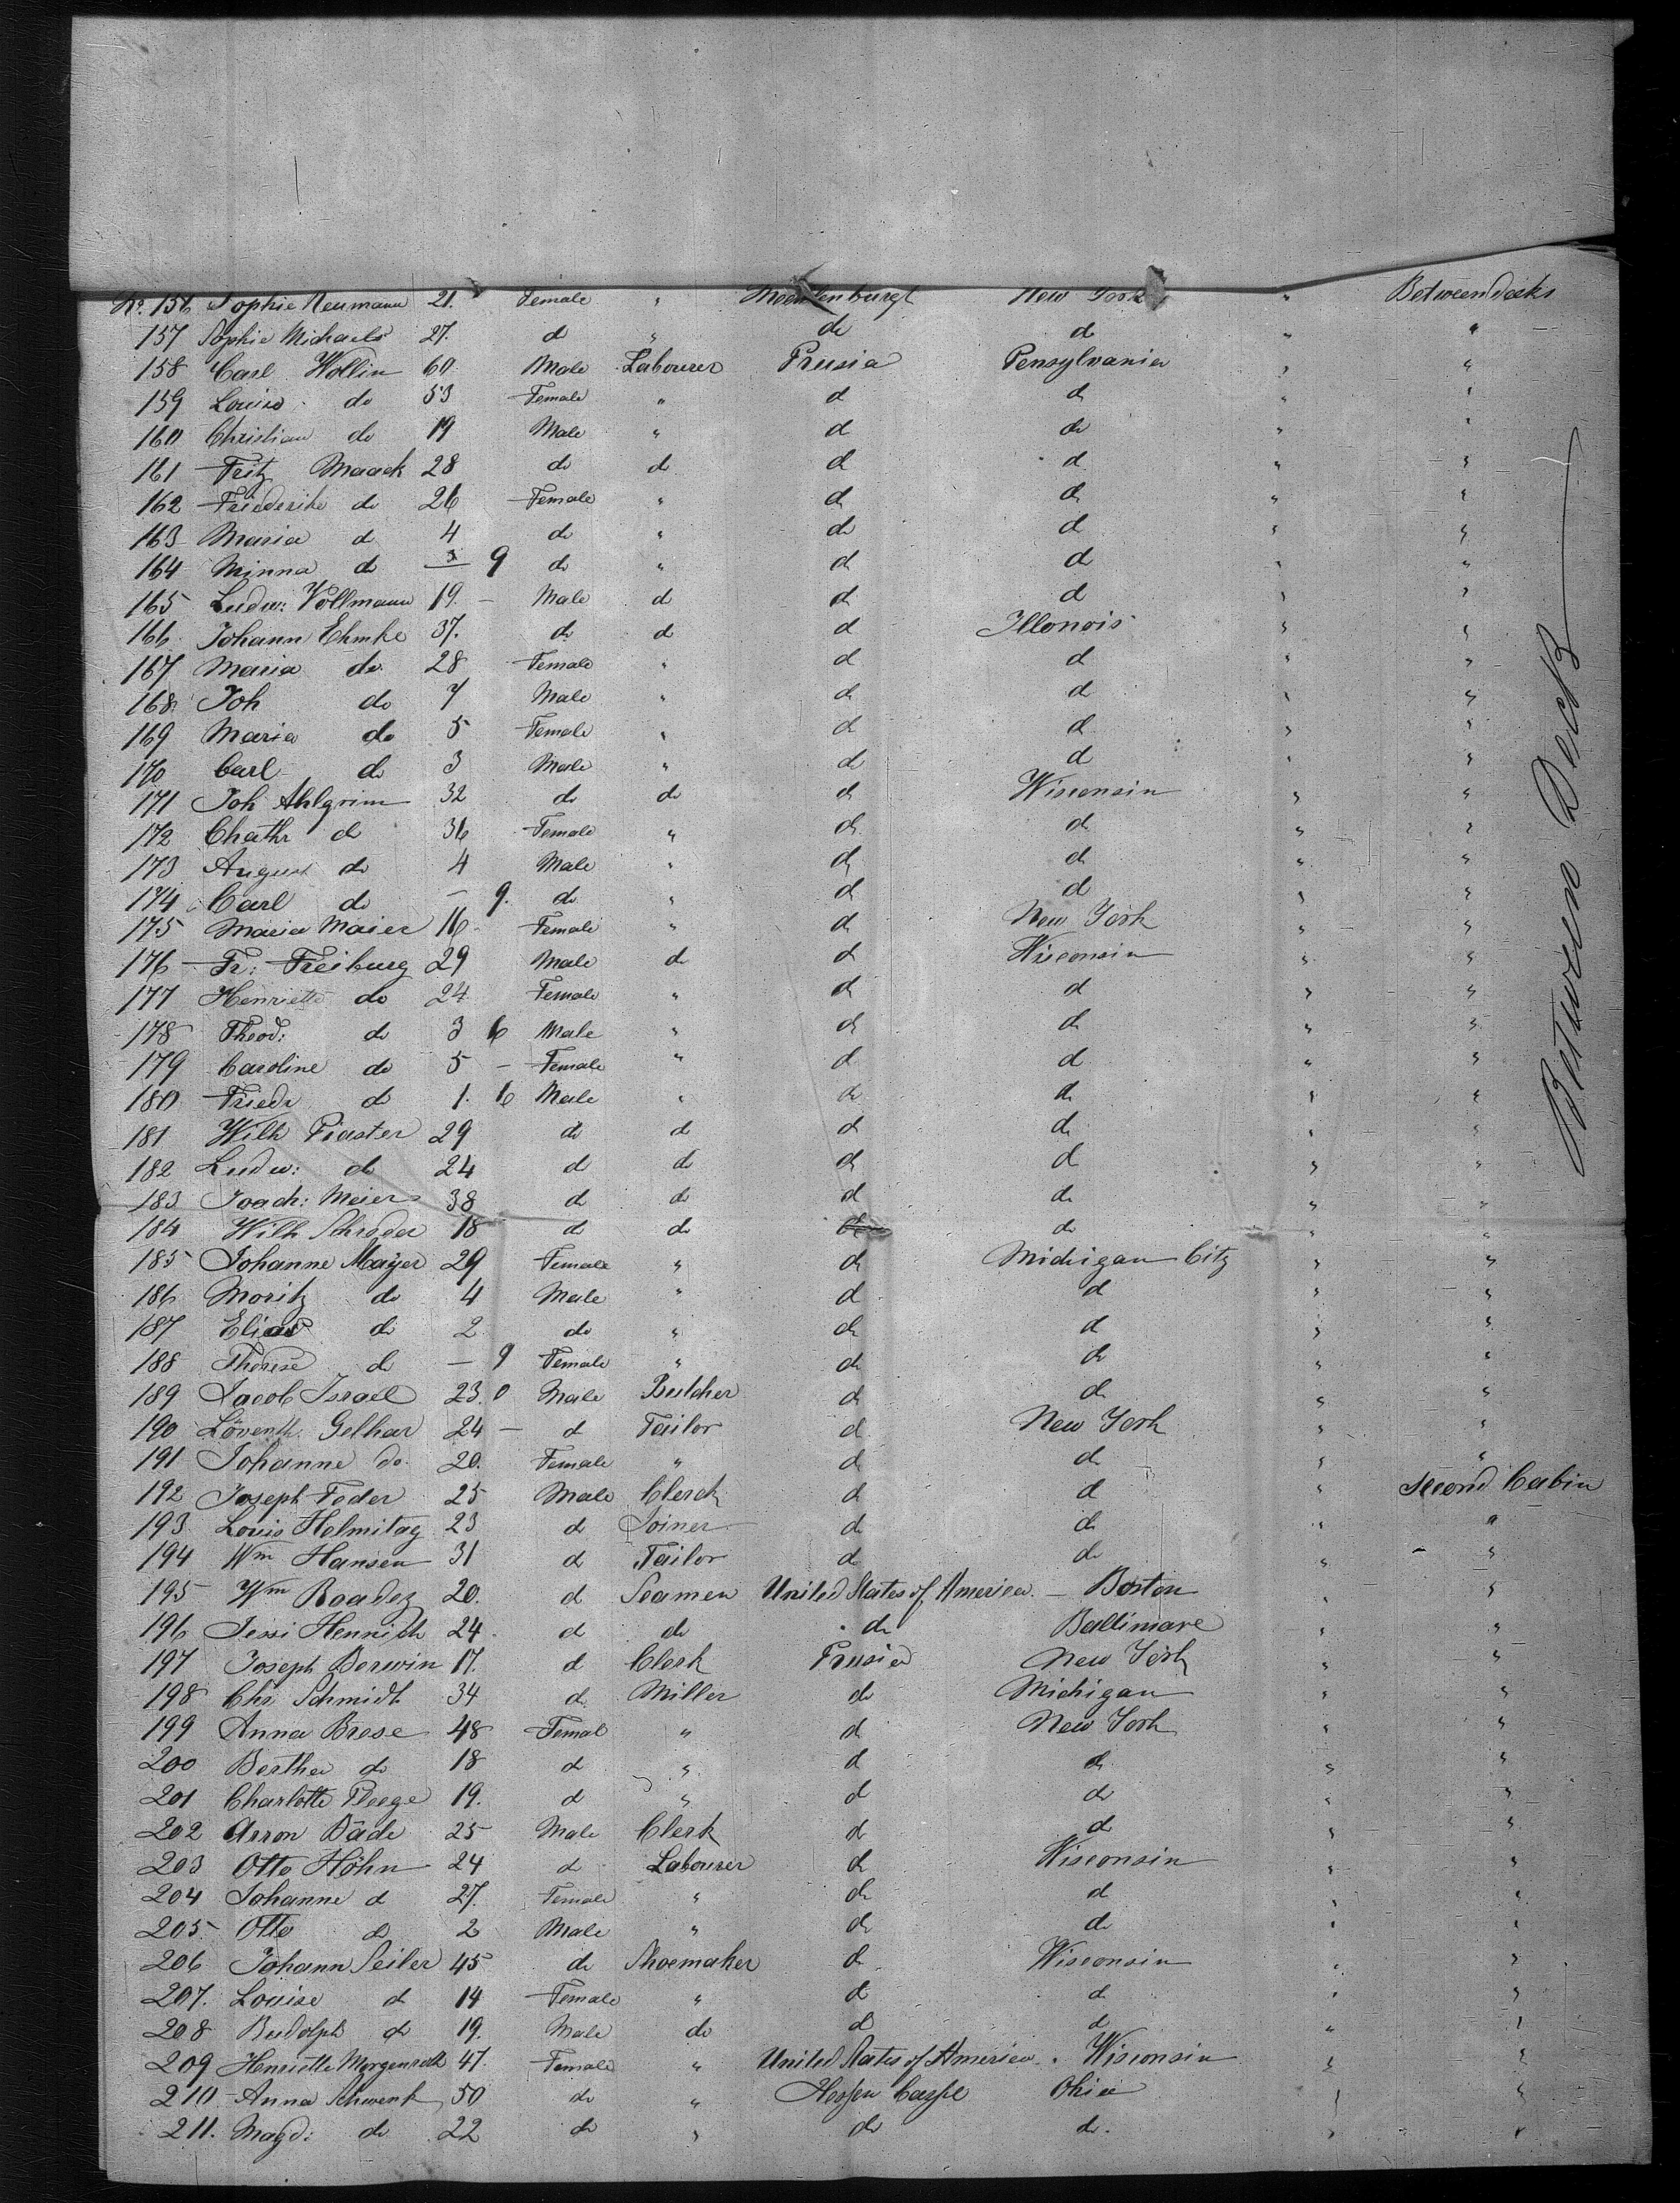 No. 156 Sophie Neumann 21. Female " Mecklenburgh New York " Betweendecks
157 Sophie Michaels 27. do " do do " "
158 Carl Wollin 60 Male Labourer Prusia Pensylvania " "
159 Louise do 53 Female " d d " "
160 Christian do 19 Male " d do " "
161 Fritz Maack 28 do d d d " "
162 Friederike do 26 Female " d d " "
163 Maria d 4 do " do d " "
164 Minna do 9 do " d d " "
165 Ludw: Vollmann 19. – Male d d d " "
166 Johann Ehmke 37. do d d Illonois " "
167 Maria do 28 Female " d d " "
168 Joh do 7 Male " d d " "
169 Maria do 5 Female " d d " "
170 Carl do 3 Male " d d " "
171 Joh Ahlgrim 32 do do d Wisconsin " "
172 Chathr d 36 Female " d d " "
173 August do 4 Male " d d " "
174 Carl do – 9. do " d d " "
175 Maria Maier 16 Female " d New York " "
176 Fr: Freiburg 29 Male d d Wisconsin " "
177 Henriette do 24 Female " d d " "
178 Theod: do 3 6 Male " d d " "
179 Caroline do 5 – Female " d d " "
180 Friedr d 1. 6 Male " d d " "
181 Wilh Piaster 29 do d d d " "
182 Ludw: d 24 d do d d " "
183 Joach: Meier 38 d do d d " "
184 Wilh Schroder 18 do do do " "
185 Johanne Mayer 29 Female " d Michigan City " "
186 Moritz do 4 Male " d d " "
187 Elias do 2 do " d d " "
188 Therese d – 9 Female " d d " "
189 Jacob Israel 23. 0 Male Butcher d d " "
190 Löventh. Gelhar 24 – d Tailor d New York " "
191 Johanne do 20. Female " d d " "
192 Joseph Feder 25 Male Clerck d d " Second Cabin
193 Louis Helmitag 23 d Joiner d d " "
194 Wm Hansen 31 d Tailor d do " "
195 Wm Roadez 20. d Seamen United States of America – Boston " "
196 Jessi Hennich 24 d do do Baltimare " "
197 Joseph Berwin 17. d Clerk Prusia New York " "
198 Chr. Schmidt 34 d Miller do Michigan " "
199 Anna Brese 48 Femal " d New York " "
200 Berthe do 18 d " d d " "
201 Charlotte Pleege 19. d " d d " "
202 Arron Bäde 25 Male Clerk d d " "
203 Otto Höhn 24 d Labourer d Wisconsin " "
204 Johanne d 27. Female " d d " "
205 Otto d 2 Male " d d " "
206 Johann Seiler 45 do Shoemaker d Wisconsin " "
207. Louise d 14 Female " d d " "
208 Rudolph d 19. Male do d d " "
209 Henriette Morgenroth 47. Female " United States of America. Wisconsin " "
210 Anna Schwenk 50 do " Hessen Cassel Ohio " "
211. Magd: do 22 do " do do. " "
Between Decks